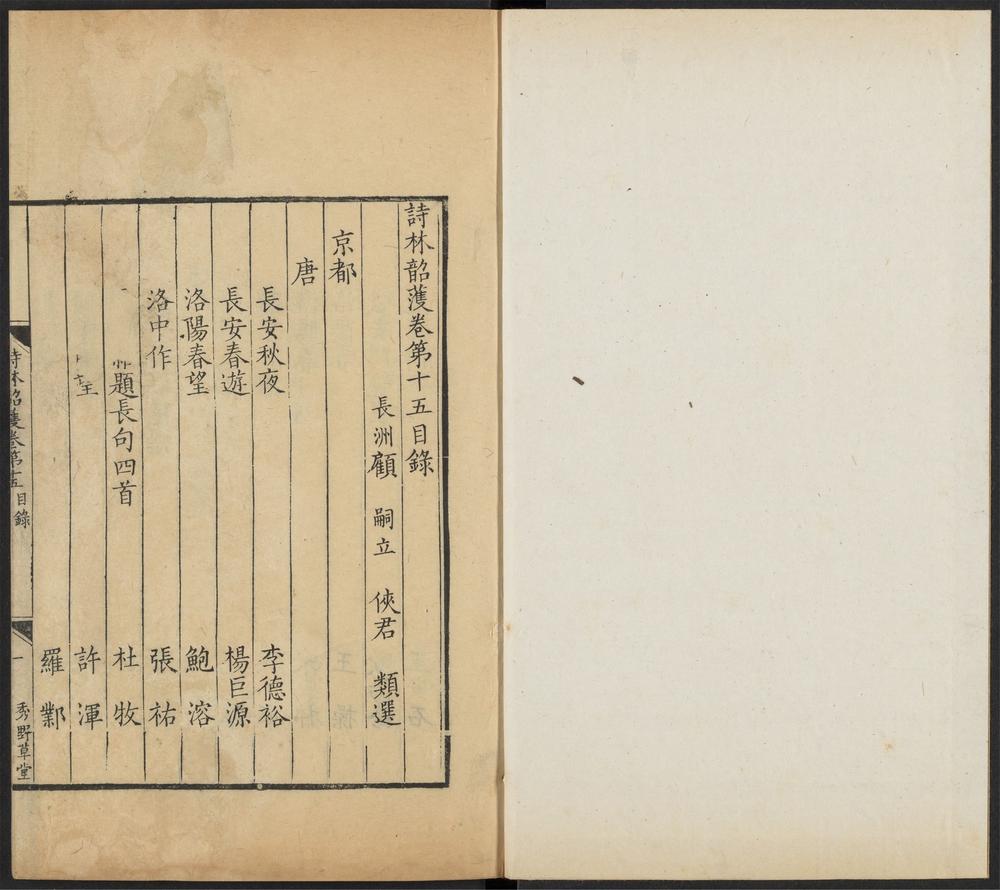 詩林韶濩卷第十五目錄
長洲顧 嗣立 俠君 類選
京都
唐
長安秋夜 李德裕
長安春遊 楊巨源
洛陽春望 鮑溶
洛中作 張祜
題長句四首 杜牧
望 許渾
羅鄴
詩林韶濩卷第十五目錄 一 秀野草堂